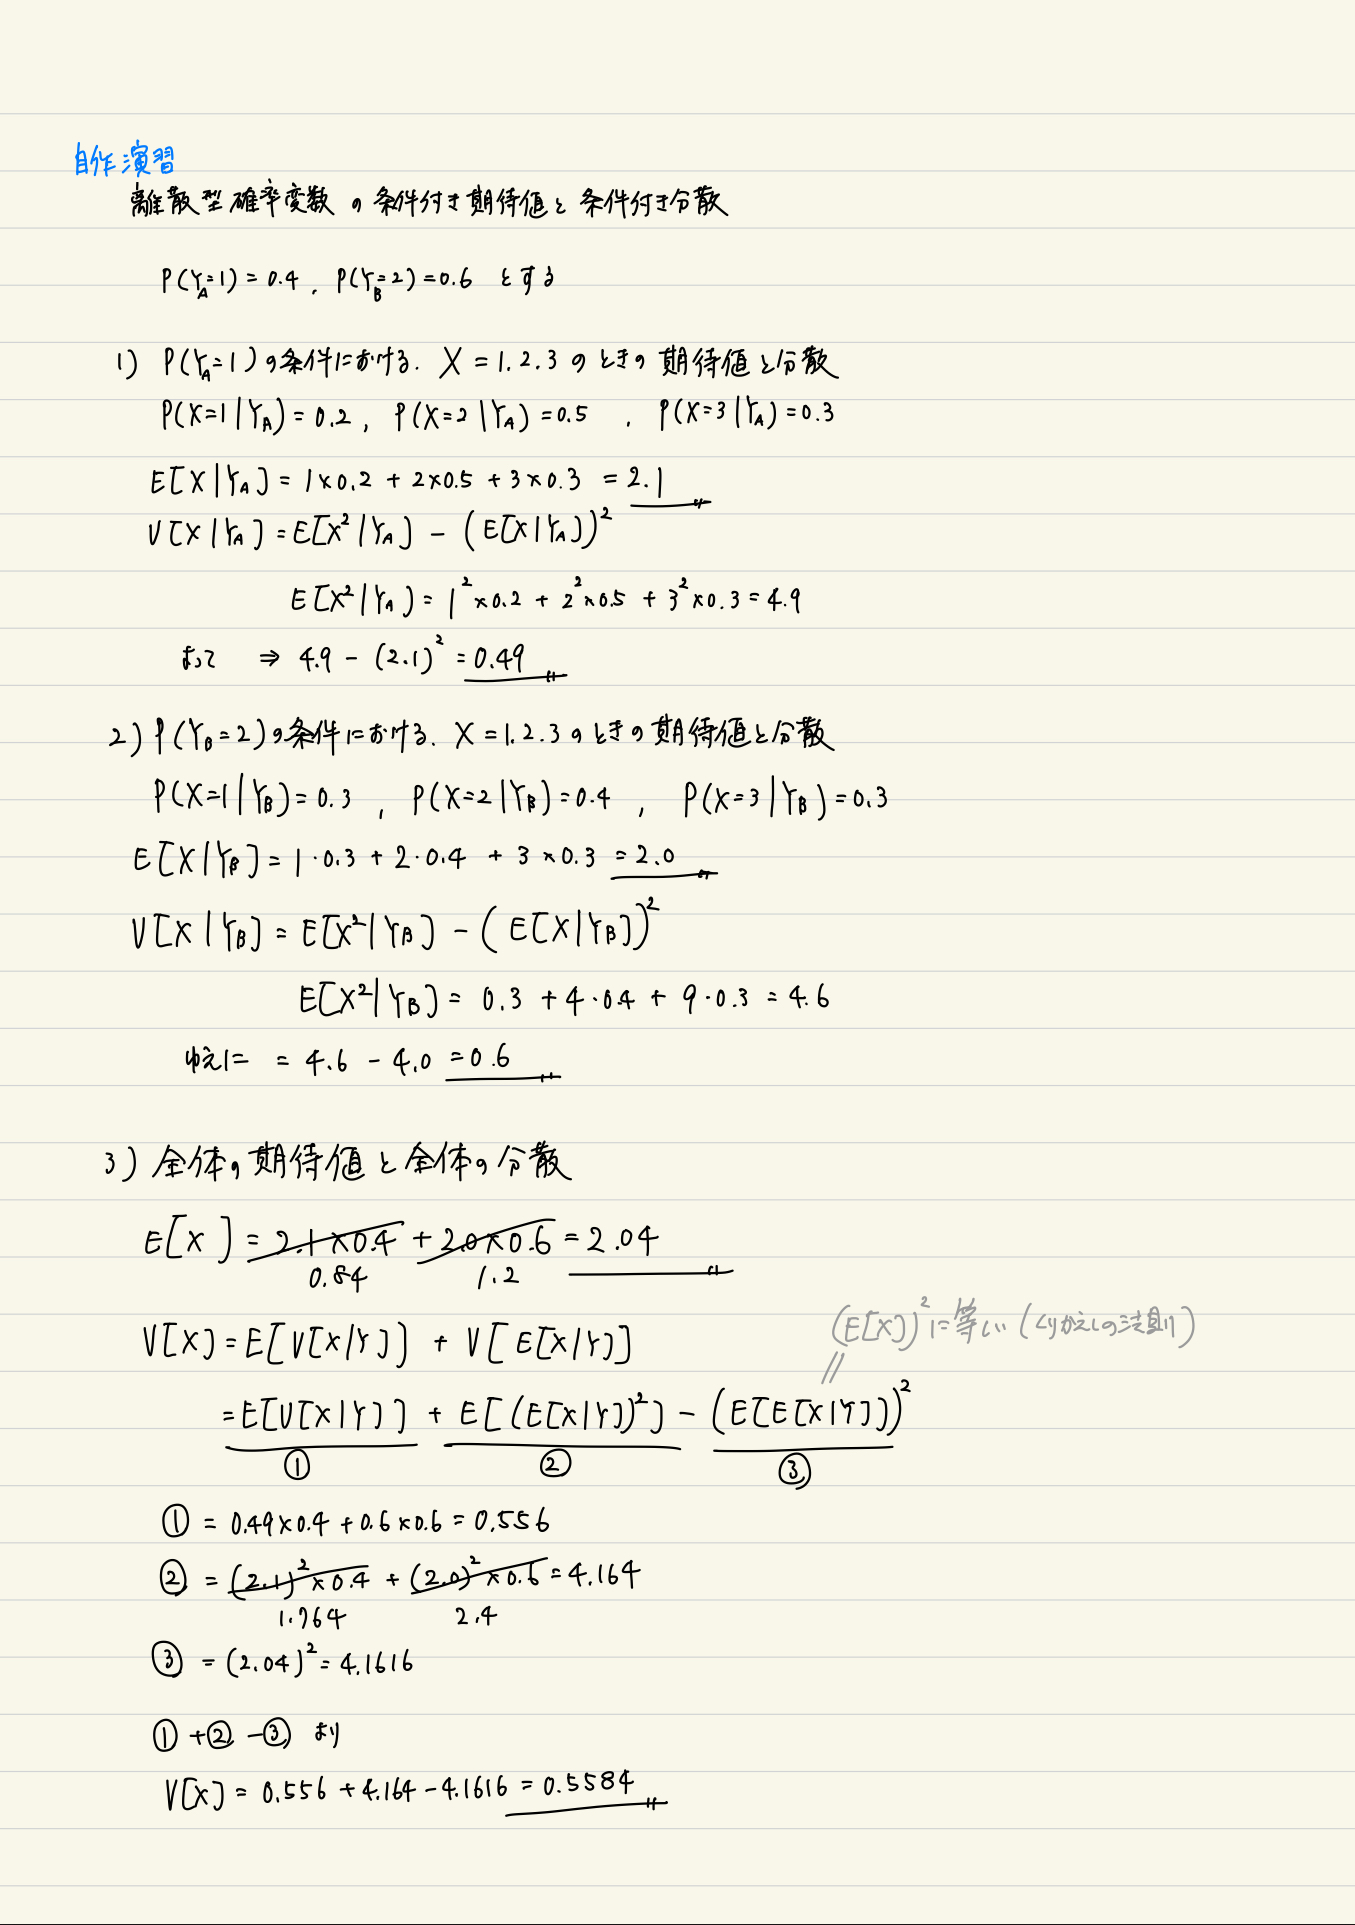 自作演習
離散型確率変数の条件付き期待値と条件付き分散
P(Y_A=1)=0.4, P(Y_B=2)=0.6 とする
1) P(Y_A=1)の条件における. X=1.2.3のときの期待値と分散
P(X=1|Y_A)=0.2, P(X=2|Y_A)=0.5, P(X=3|Y_A)=0.3
E[X|Y_A]=1×0.2+2×0.5+3×0.3=2.1
V[X|Y_A]=E[X²|Y_A]-(E[X|Y_A])²
E[X²|Y_A]=1²×0.2+2²×0.5+3²×0.3=4.9
よって ⇒ 4.9-(2.1)²=0.49
2) P(Y_B=2)の条件における. X=1.2.3のときの期待値と分散
P(X=1|Y_B)=0.3, P(X=2|Y_B)=0.4, P(X=3|Y_B)=0.3
E[X|Y_B]=1·0.3+2·0.4+3×0.3=2.0
V[X|Y_B]=E[X²|Y_B]-(E[X|Y_B])²
E[X²|Y_B]=0.3+4·0.4+9·0.3=4.6
ゆえに =4.6-4.0=0.6
3) 全体の期待値と全体の分散
E[X]=2.1×0.4+2.0×0.6=2.04
0.84 1.2
V[X]=E[V[X|Y]]+V[E[X|Y]]
(E[X])²に等しい(くりかえしの法則)
=E[V[X|Y]]+E[(E[X|Y])²]-(E[E[X|Y]])²
① ② ③
①=0.49×0.4+0.6×0.6=0.556
②=(2.1)²×0.4+(2.0)²×0.6=4.164
1.764 2.4
③=(2.04)²=4.1616
①+②-③より
V[X]=0.556+4.164-4.1616=0.5584